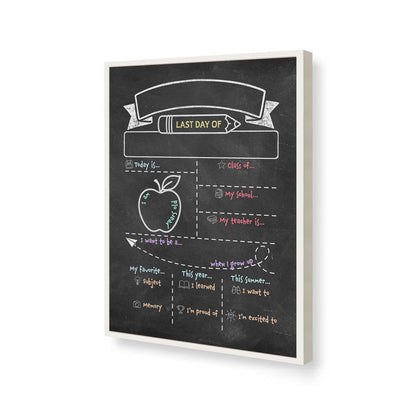 LAST DAY OF
Today is...
Class of...
I am
years old
My school...
My teacher is...
I want to be a...
when I grow up
My favorite...
This year...
This summer...
subject
I learned
I want to
memory
I'm proud of
I'm excited to